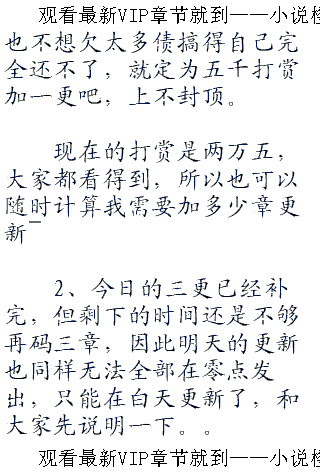 观看最新VIP章节就到——小说
也不想欠太多债搞得自己完
全还不了，就定为五千打赏
加一更吧，上不封顶。
现在的打赏是两万五，
大家都看得到，所以也可以
随时计算我需要加多少章更
新~
2、今日的三更已经补
完，但剩下的时间还是不够
再码三章，因此明天的更新
也同样无法全部在零点发
出，只能在白天更新了，和
大家先说明一下。。
观看最新VIP章节就到——小说